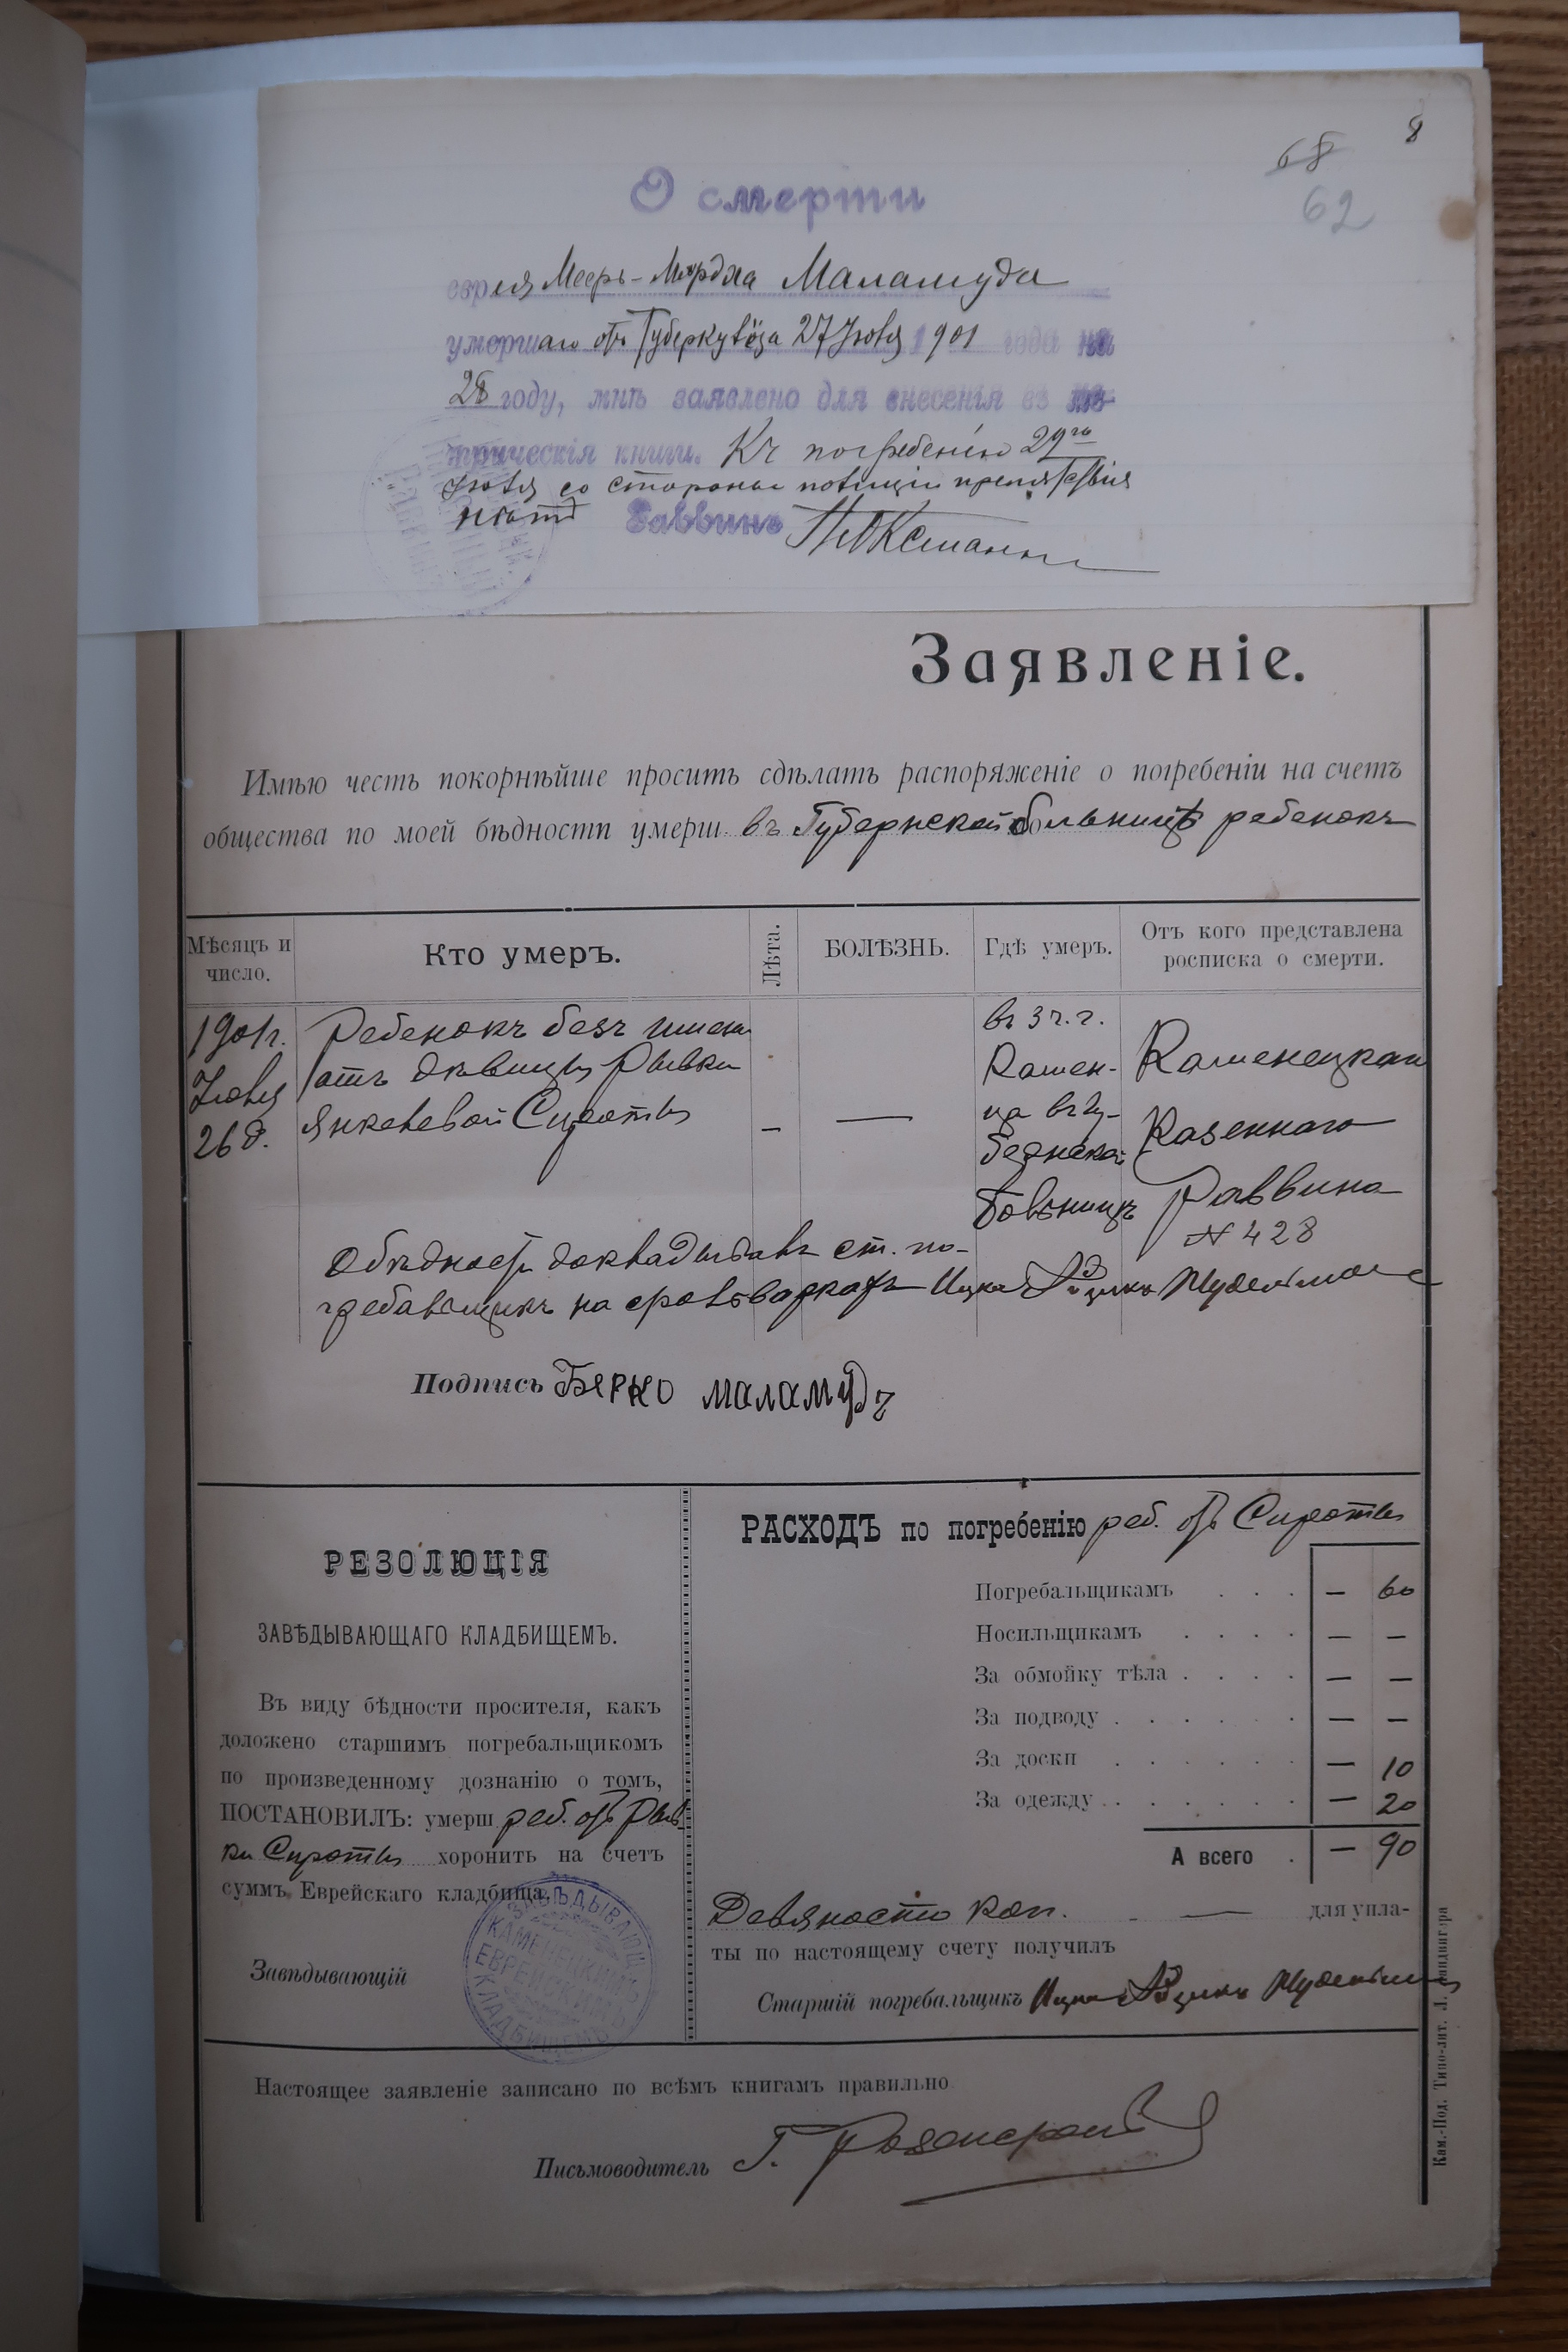 8
68
62
О смерти
еврея Меерь-Мордха Маламуда
умершаго отъ Туберкулёза 27 Іюля 1901 года на
28 году, мнѣ заявлено для внесенія въ ме-
трическія книги. Къ погребенію 29го
Іюля со стороны полиціи препятствія
нѣтъ Раввинъ
Заявленіе.
Имѣю честь покорнѣйше просить сдѣлать распоряженіе о погребеніи на счетъ
общества по моей бѣдности умерш. въ Губернской больницѣ ребенокъ
Мѣсяцъ и число. Кто умеръ. Лѣта. БОЛѢЗНЬ. Гдѣ умеръ. Отъ кого представлена росписка о смерти.
1901г.
Іюля
26 д.
Ребенокъ безъ имени
отъ дѣвицы Рывки
Янкелевой Сироты
–
—
въ 3 ч. г.
Камен-
ца въ Гу-
бернской
больницѣ
Каменецкаго
Казеннаго
Раввина
№ 428
О бѣдности докладывалъ ст. по-
гребальщикъ на
Подпись Берко маламудъ
РЕЗОЛЮЦІЯ
ЗАВѢДЫВАЮЩАГО КЛАДБИЩЕМЪ.
Въ виду бѣдности просителя, какъ
доложено старшимъ погребальщикомъ
по произведенному дознанію о томъ,
ПОСТАНОВИЛЪ: умерш. реб. отъ Рыв-
ки Сироты хоронить на счетъ
суммъ Еврейскаго кладбища.
Завѣдывающій
ЗАВѢДЫВАЮЩ.
КАМЕНЕЦКИМЪ
ЕВРЕЙСКИМЪ
КЛАДБИЩЕМЪ
РАСХОДЪ по погребенію реб. отъ Сироты
Погребальщикамъ . . . — 60
Носильщикамъ . . . . — —
За обмойку тѣла . . . . — —
За подводу . . . . . . — —
За доски . . . . . . — 10
За одежду . . . . . . . — 20
А всего . — 90
Девяносто коп. — для упла-
ты по настоящему счету получилъ
Старшій погребальщикъ
Настоящее заявленіе записано по всѣмъ книгамъ правильно.
Письмоводитель Г.
Кам.-Под. Типо-лит. Л.